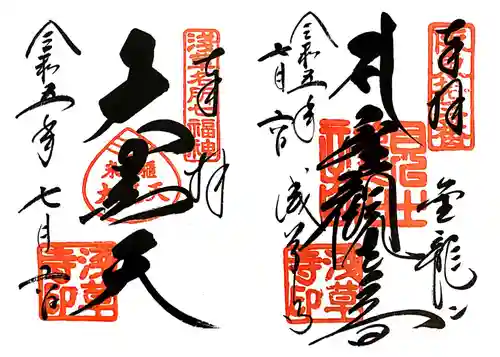 奉拝
金龍山
聖観世音
浅草寺
令和五年
七月六日
浅草寺印
奉拝
浅草名所七福神
大黒天
浅草寺印
令和五年七月六日